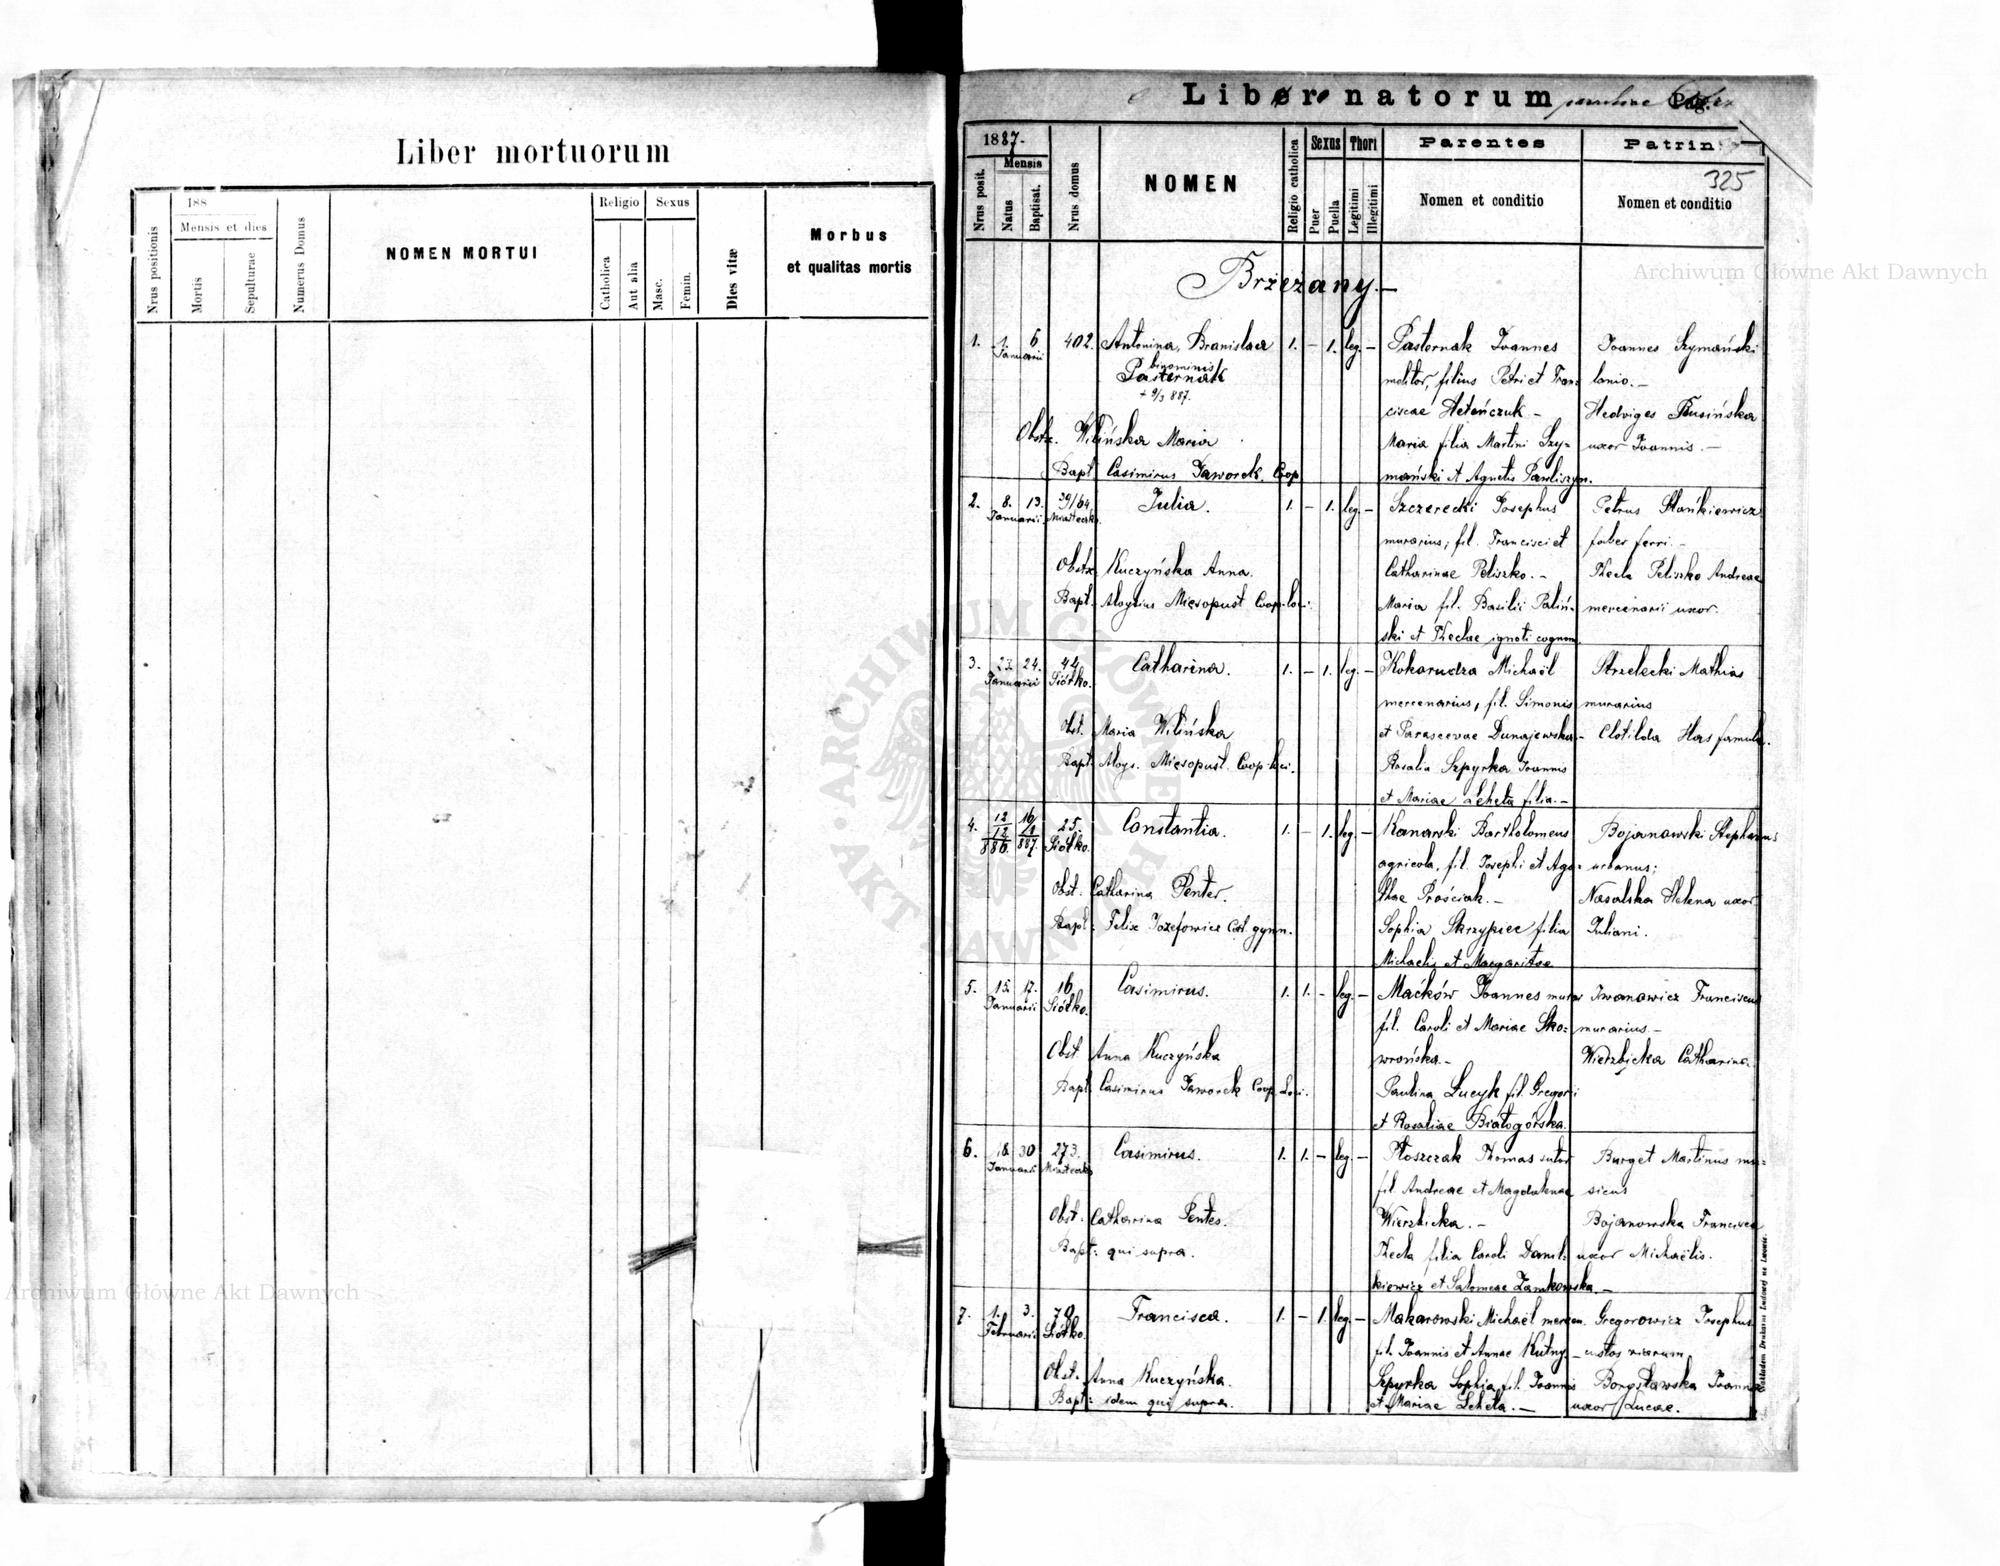 Liber mortuorum
Nrus positionis
188
Mensis et dies
Mortis
Sepulturae
Numerus Domus
NOMEN MORTUI
Religio
Catholica
Aut alia
Sexus
Masc.
Femin.
Dies vitæ
Morbus
et qualitas mortis
Liber natorum
Pag.
325
1887.
Nrus posit.
Mensis
Natus
Baptisat.
Nrus domus
NOMEN
Religio catholica
Sexus
Puer
Puella
Thori
Legitimi
Illegitimi
Parentes
Nomen et conditio
Patrini
Nomen et conditio
Brzeżany.—
1. 1. 6 402. Antonina, Branislaa 1. – 1. leg. – Pasternak Joannes Joannes Szymański
Januarii binominis molitor, filius Petri et Fran= lanio.–
Pasternak ciscae Heteńczuk – Hedviges Rusińska
+ 9/3 887.
Obstx. Wilińska Maria Maria filia Martini Szy= uxor Joannis.–
Bapt. Casimirus Jaworek Coop. mański et Agnetis Pawliszyn.
2. 8. 13. 39/64 Julia. 1. – 1. leg. – Szczerecki Josephus Petrus Stańkiewicz
Januarii Miasteczko. murarius; fil. Francisci et faber ferri.–
Obstx. Kuczyńska Anna. Catharinae Peliszko.– Thecla Peliszko Andreae
Bapt. Aloysius Mięsopust Coop. loci. Maria fil. Basilii Paliń= mercenarii uxor.
ski et Theclae ignoti cognom.
3. 23. 24. 44 Catharina. 1. – 1. leg. – Kokorudza Michaël Strzelecki Mathias
Januarii Siółko. mercenarius, fil. Simonis murarius
Obst. Maria Wilińska et Parascevae Dunajewska.– Clotilda Has famula.
Bapt. Aloys. Mięsopust. Coop. loci. Rosalia Szpyrka Joannis
et Mariae Leheta filia.–
4. 12/12 886. 16/1 887. 25. Constantia. 1. – 1. leg. – Kanarski Bartholomeus Bojanowski Stephanus
Siółko. agricola, fil. Josephi et Aga= urbanus;
Obst. Catharina Penter. thae Prościak.– Nasalska Helena uxor
Bapt. Felix Józefowicz Cat. gymn. Sophia Skrzypiec filia Juliani.
Michaelis et Margaritae
5. 15. 17. 16 Casimirus. 1. 1. – leg. – Maćków Joannes murar Iwanowicz Franciscus
Januarii Siółko. fil. Caroli et Mariae Sko= murarius.–
Obst. Anna Kuczyńska wrońska.– Wierzbicka Catharina.
Bapt. Casimirus Jaworek Coop. Loci. Paulina Łucyk fil. Gregorii
et Rosaliae Białogórska.
6. 18 30 273. Casimirus. 1. 1. – leg. – Ptoszczak Thomas sutor Burget Martinus mu=
Januarii Miasteczko fil. Andreae et Magdalenae sicus
Obst. Catharina Pentes. Wierzbicka.– Bojanowska Francisca
Bapt: qui supra. Thecla filia Caroli Danil= uxor Michaëlis.
kiewicz et Salomeae Zamkowska.–
7. 1. 3. 79. Francisca. 1. – 1. leg. – Makarowski Michaël mercen. Gregorowicz Josephus
Februarii Siółko. fil. Joannis et Annae Kutny.– custos viarum.
Obst. Anna Kuczyńska. Szpyrka Sophia fil. Joannis Borysławska Joanna
Bapt: idem qui supra. et Mariae Leheta.– uxor Lucae.
Nakładem Drukarni Ludowej we Lwowie.
Archiwum Główne Akt Dawnych
Archiwum Główne Akt Dawnych
ARCHIWUM GŁÓWNE AKT DAWNYCH